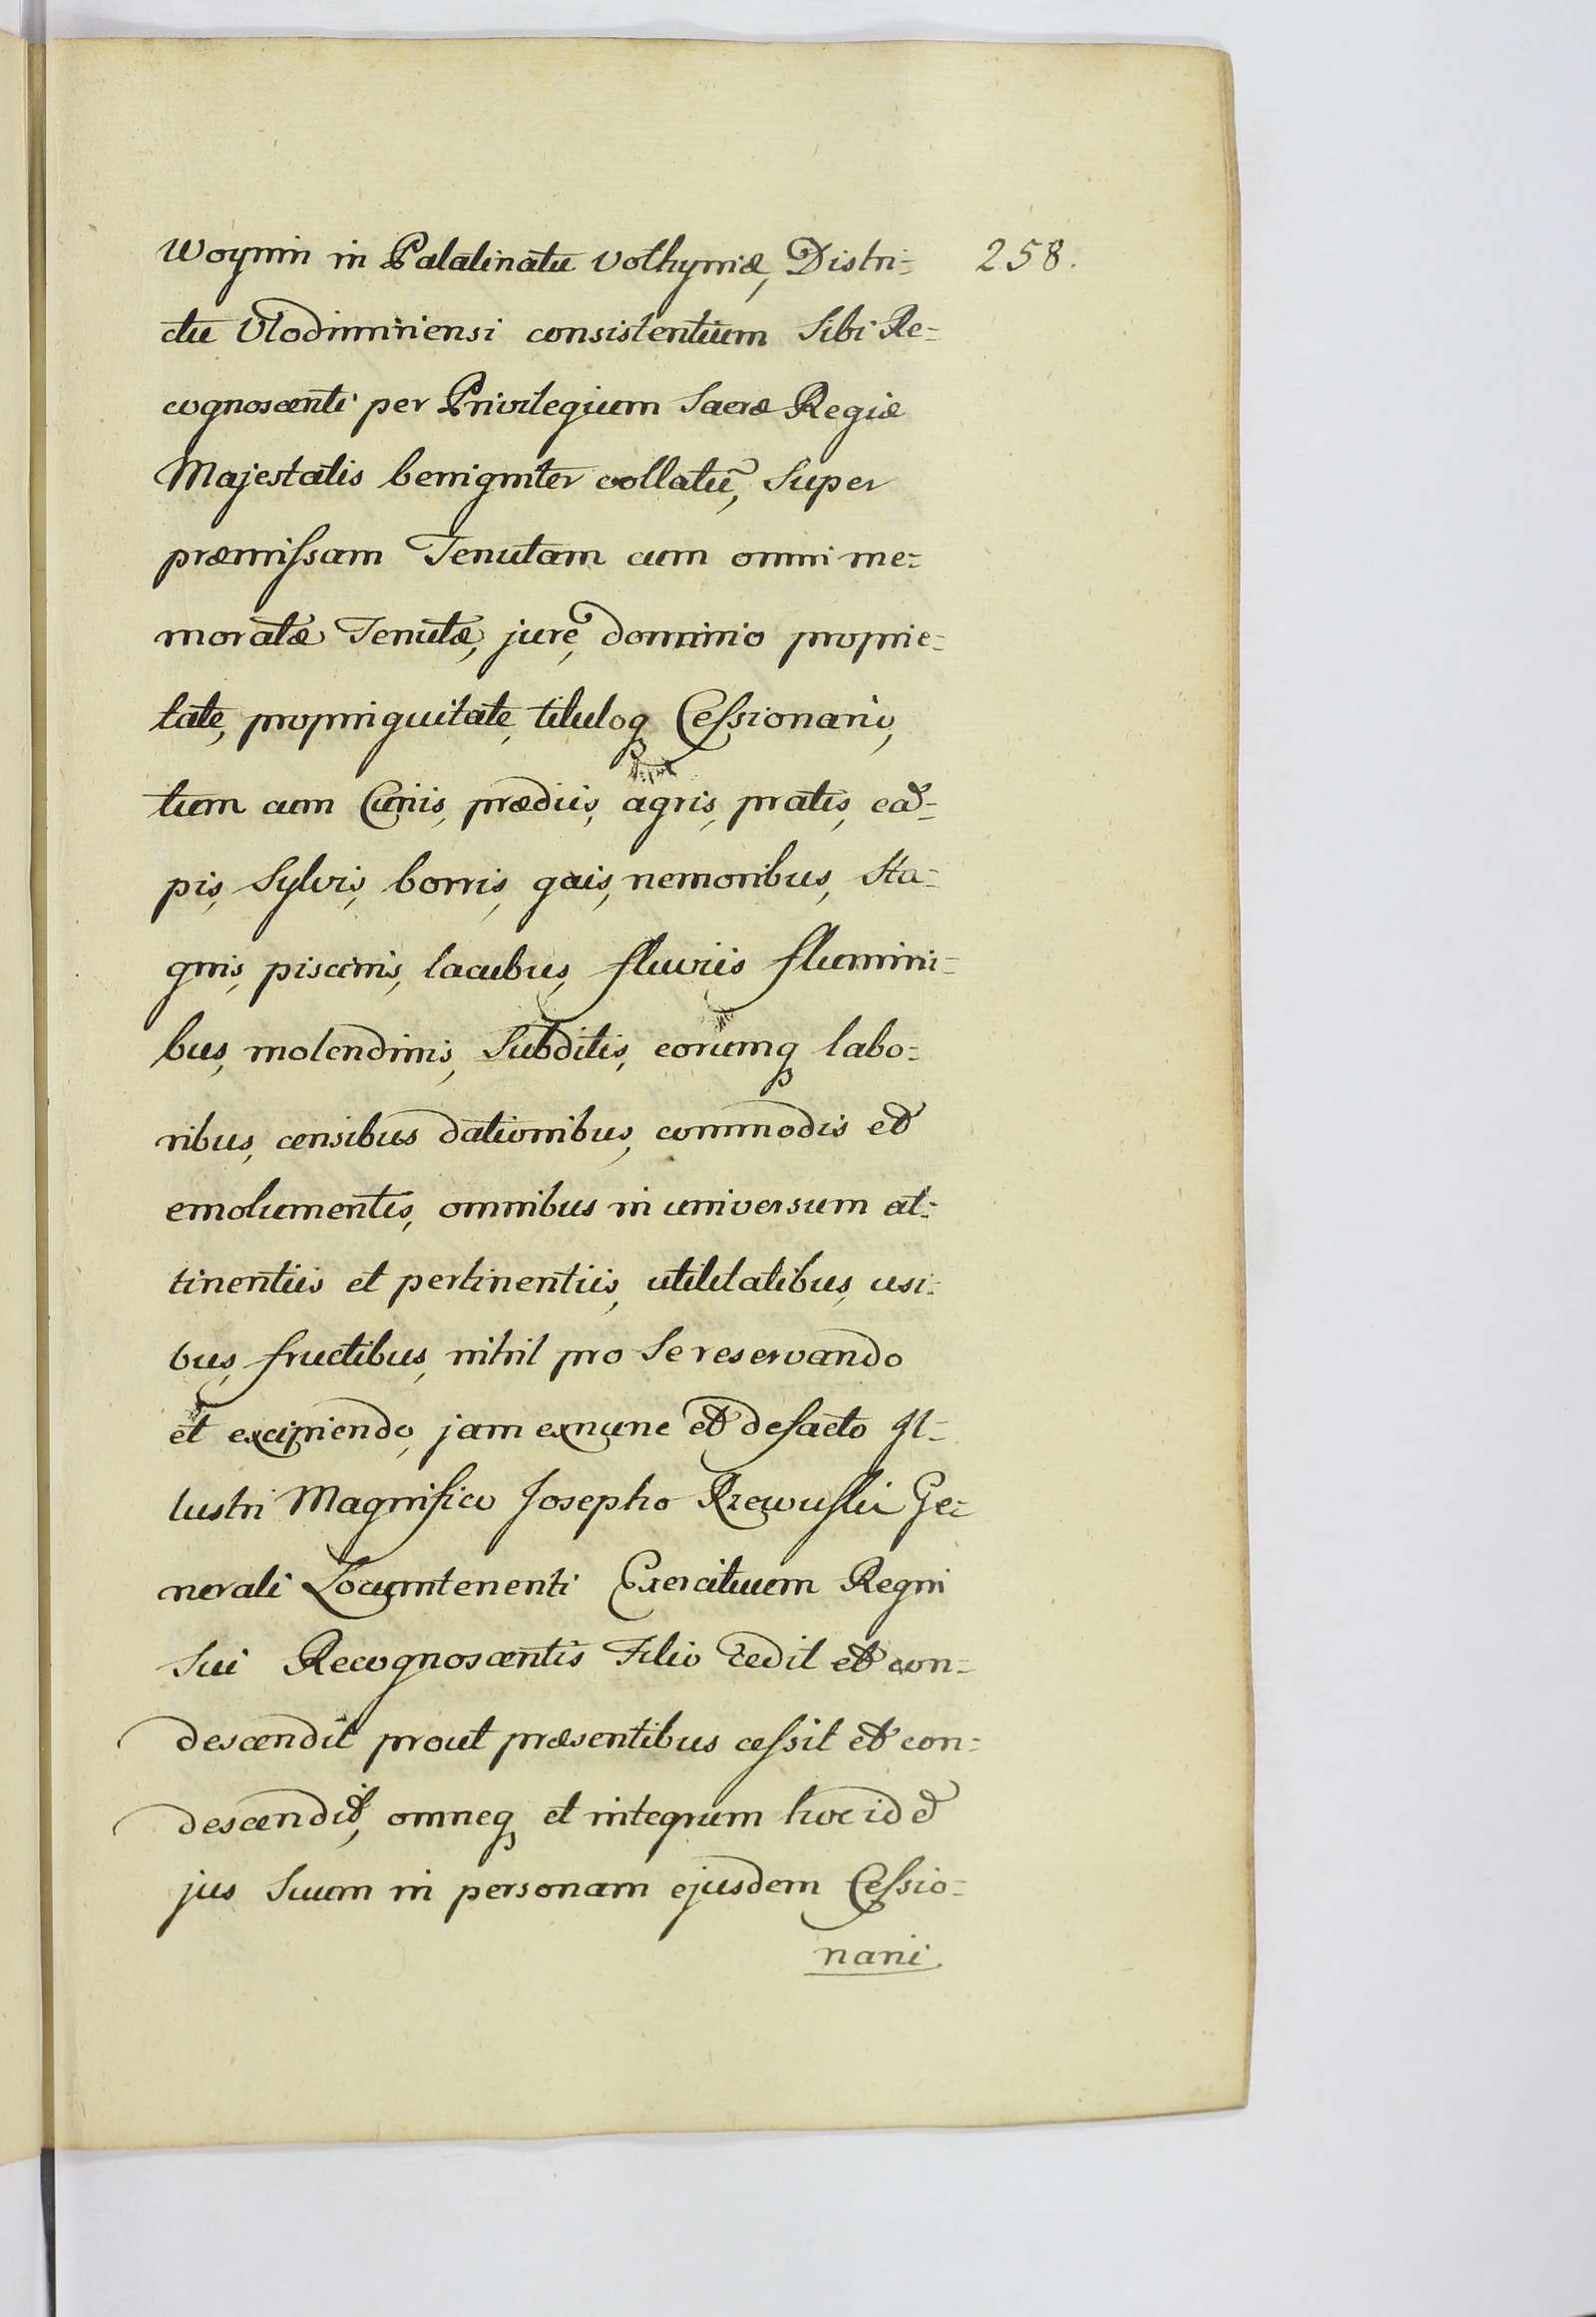 Woynin in Palatinatu Volhyniæ, Distri= 258.
ctu Vlodimiriensi consistentium Sibi Re=
cognoscenti per Privilegium Sacræ Regiæ
Majestatis benigniter collatū, Super
præmissam Tenutam cum omni me=
moratæ Tenutæ, jure, dominio proprie=
tate, propinquitate, tituloq Cessionario,
tum cum Curiis, prædiis, agris, pratis, ca=
pis, Sylvis, borris, gais, nemoribus, Sta=
gnis, piscinis, lacubus, fluviis flumini=
bus, molendinis, Subditis, eorumq labo=
ribus, censibus dationibus, commodis et
emolumentis, omnibus in universum at=
tinentiis et pertinentiis, utilitatibus, usi=
bus, fructibus, nihil pro Se reservando
et excipiendo, jam exnunc et defacto Il=
lustri Magnifico Josepho Rzewuski Ge=
nerali Locumtenenti Exercituum Regni
Sui Recognoscentis Filio cedit et con=
descendit prout præsentibus cessit et con=
descendit, omneq et integrum hoc id et
jus Suum in personam ejusdem Cessio=
narii